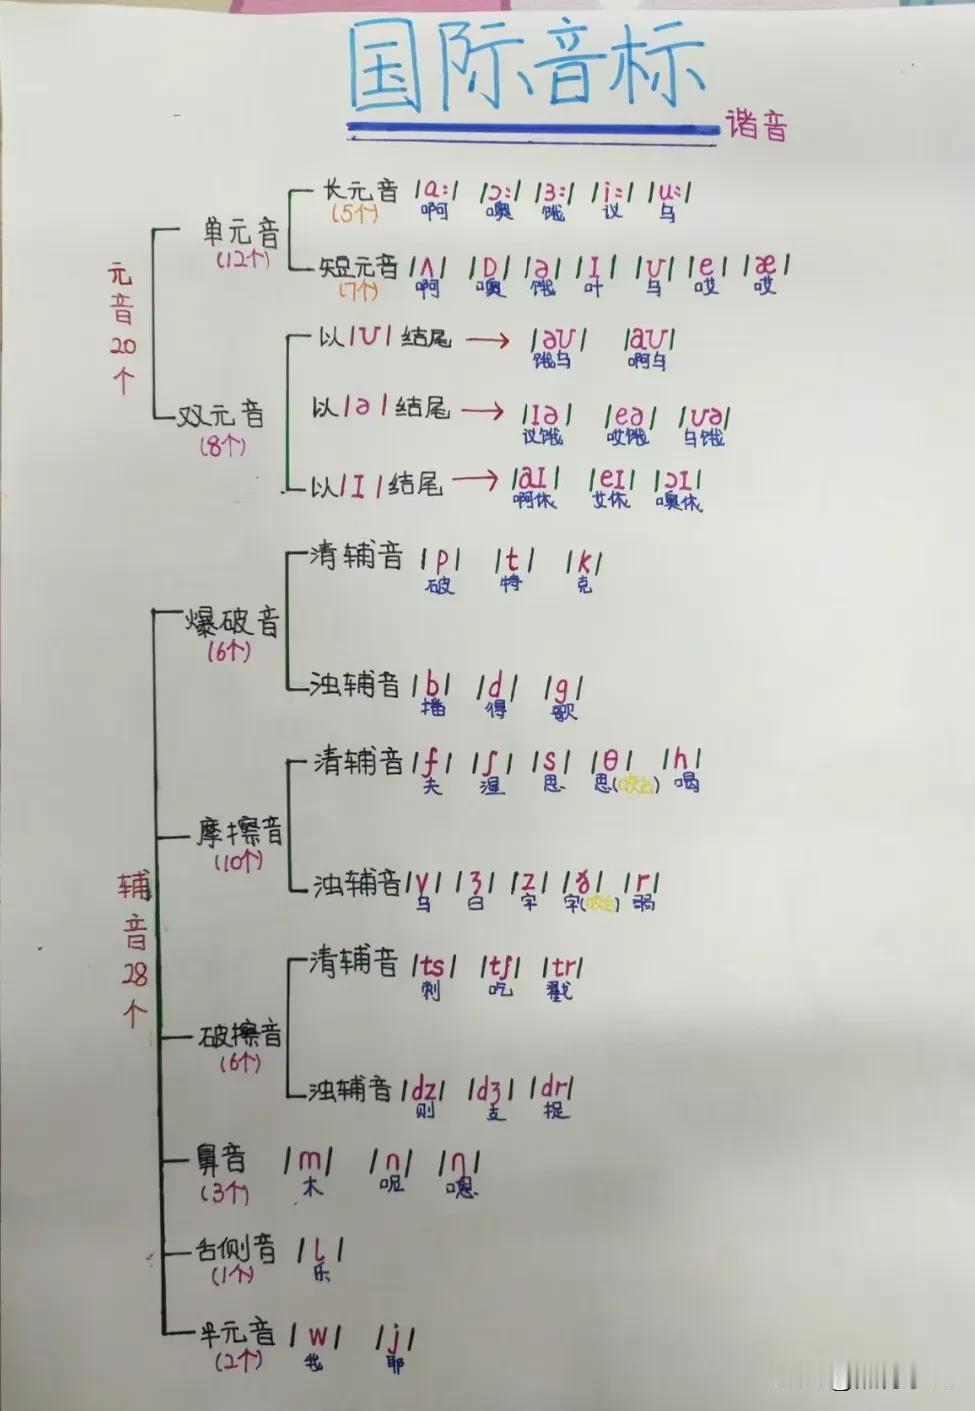 国际音标
谐音
元音20个
单元音
(12个)
长元音 /a:/ /ɔ:/ /3:/ /i:/ /u:/
(5个) 啊 噢 饿 议 乌
短元音 /ʌ/ /ɒ/ /ə/ /I/ /ʊ/ /e/ /æ/
(7个) 啊 噢 饿 叶 乌 哎 哎
双元音
(8个)
以/ʊ/结尾 → /əʊ/ /aʊ/
饿乌 啊乌
以/ə/结尾 → /Iə/ /eə/ /ʊə/
议饿 哎饿 乌饿
以/I/结尾 → /aI/ /eI/ /ɔI/
啊依 艾依 噢依
辅音28个
爆破音
(6个)
清辅音 /p/ /t/ /k/
破 特 克
浊辅音 /b/ /d/ /g/
播 得 歌
摩擦音
(10个)
清辅音 /f/ /ʃ/ /s/ /θ/ /h/
夫 湿 思 思(咬舌) 喝
浊辅音 /v/ /ʒ/ /z/ /ð/ /r/
乌 日 字 字(咬舌) 弱
破擦音
(6个)
清辅音 /ts/ /tʃ/ /tr/
刺 吃 戳
浊辅音 /dz/ /dʒ/ /dr/
则 支 捉
鼻音 /m/ /n/ /η/
(3个) 木 呢 嗯
舌侧音 /l/
(1个) 乐
半元音 /w/ /j/
(2个) 我 耶